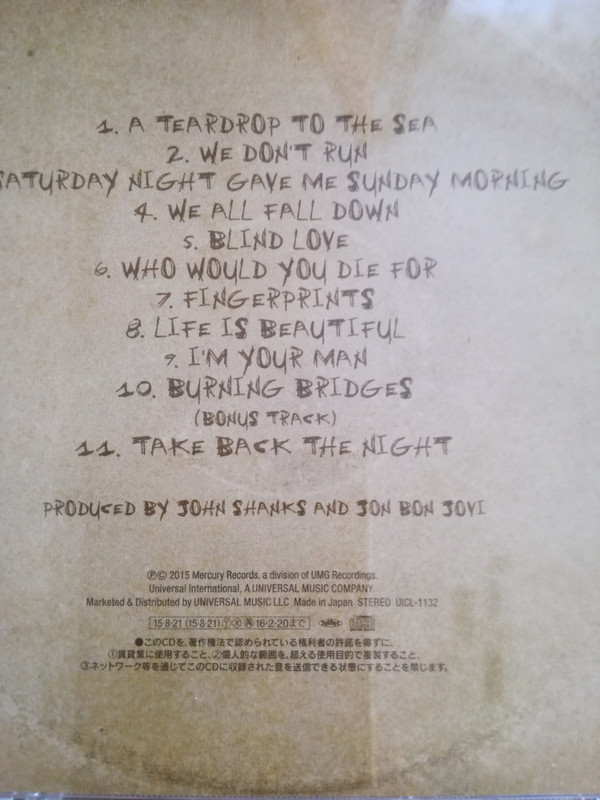 1. A TEARDROP TO THE SEA
2. WE DON'T RUN
SATURDAY NIGHT GAVE ME SUNDAY MORNING
4. WE ALL FALL DOWN
5. BLIND LOVE
6. WHO WOULD YOU DIE FOR
7. FINGERPRINTS
8. LIFE IS BEAUTIFUL
9. I'M YOUR MAN
10. BURNING BRIDGES
(BONUS TRACK)
11. TAKE BACK THE NIGHT
PRODUCED BY JOHN SHANKS AND JON BON JOVI
℗© 2015 Mercury Records, a division of UMG Recordings.
Universal International, A UNIVERSAL MUSIC COMPANY.
Marketed & Distributed by UNIVERSAL MUSIC LLC Made in Japan STEREO UICL-1132
15·8·21 (15·8·21) Ⓨ Ⓧ ㊢ 16·2·20まで
●このCDを、著作権法で認められている権利者の許諾を得ずに、
①賃貸業に使用すること、②個人的な範囲を超える使用目的で複製すること、
③ネットワーク等を通じてこのCDに収録された音を送信できる状態にすることを禁じます。